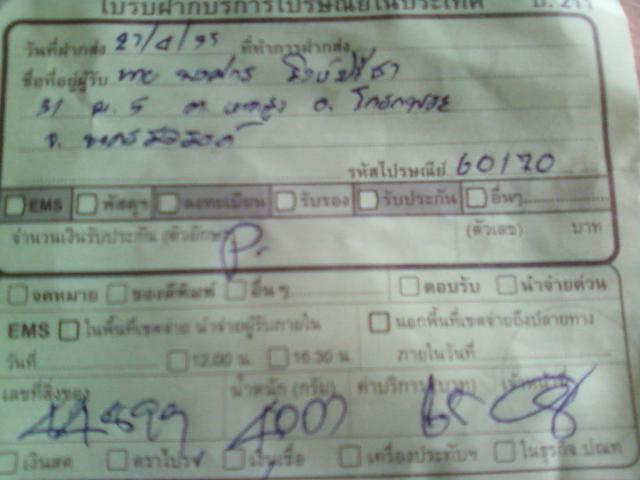 ใบรับฝากบริการไปรษณีย์ในประเทศ ป. 211
วันที่ฝากส่ง 27/4/55 ที่ทำการฝากส่ง
ชื่อที่อยู่ผู้รับ
31 ม. 5 ต. อ. โกรกพระ
จ. นครสวรรค์
รหัสไปรษณีย์ 60170
EMS พัสดุฯ ลงทะเบียน รับรอง รับประกัน อื่นๆ
จำนวนเงินรับประกัน (ตัวอักษร) (ตัวเลข) บาท
จดหมาย ของตีพิมพ์ อื่นๆ ตอบรับ นำจ่ายด่วน
EMS ในพื้นที่เขตจ่าย นำจ่ายผู้รับภายใน นอกพื้นที่เขตจ่ายถึงปลายทาง
วันที่ 12.00 น. 16.30 น. ภายในวันที่
เลขที่สิ่งของ น้ำหนัก (กรัม) ค่าบริการ (บาท) เจ้าหน้าที่
เงินสด ตราไปรษ เงินเชื่อ เครื่องประทับฯ ในธุรกิจ ปณท